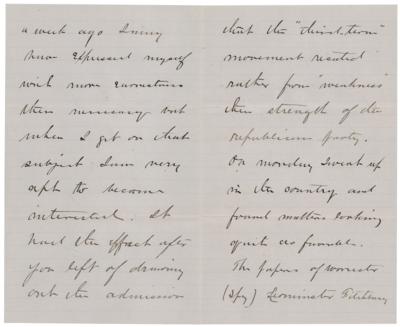 a week ago I may
have expressed myself
with more earnestness
than necessary but
when I get on that
subject I am very
apt to become
interested. It
had the effect after
you left of drawing
out the admission
that the "third term"
movement resulted
rather from "weakness"
than strength of the
republican party.
On monday I went up
in the country and
found matters looking
quite as favorable.
The papers of Worcester
(Spy) Leominster Fitchburg